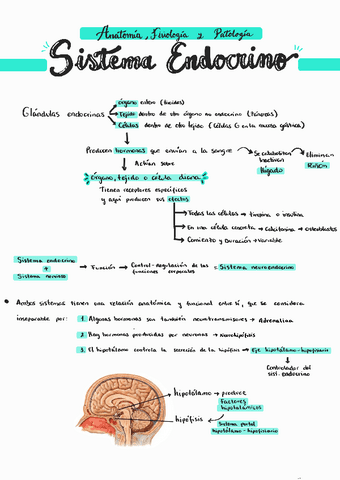 Anatomía, Fisiología y Patología
Sistema Endocrino
Glándulas endocrinas
órgano entero (tiroides)
Tejido dentro de otro órgano no endocrino (Páncreas)
Células dentro de otro tejido (Células G en la mucosa gástrica)
Producen hormonas que envían a la sangre
Se catabolizan
Inactivan
Hígado
Eliminan
Riñón
Actúan sobre
órgano, tejido o célula diana
Tienen receptores específicos
y aquí producen sus efectos
Todas las células → tiroxina o insulina
En una célula concreta → Calcitonina → osteoblastos
Comienzo y Duración → variable
Sistema endocrino
+
Sistema nervioso
→ Función → Control-regulación de las
funciones corporales
= Sistema neuroendocrino
Ambos sistemas tienen una relación anatómica y funcional entre sí, que se considera
inseparable por: 1. Algunas hormonas son también neurotransmisores → Adrenalina
2. Hay hormonas producidas por neuronas → Neurohipófisis
3. El hipotálamo controla la secreción de la hipófisis → Eje hipotálamo-hipofisario
Controlador del
sist. endocrino
hipotálamo → produce
Factores
hipotalámicos
hipófisis
Sistema portal
hipotálamo-hipofisario